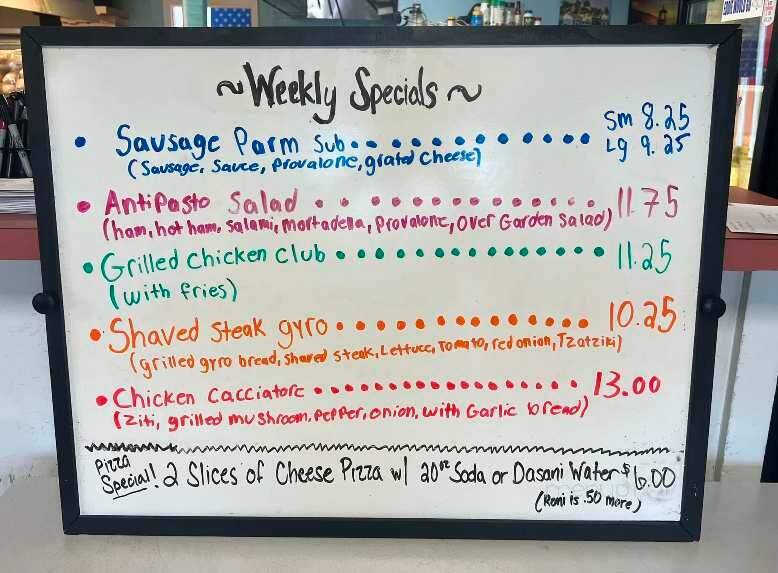 ~Weekly Specials~
• Sausage Parm Sub............ Sm 8.25
Lg 9.25
(Sausage, Sauce, Provalone, grated cheese)
• Antipasto Salad ............ 11.75
(ham, hot ham, Salami, Mortadella, Provalone, Over Garden Salad)
• Grilled Chicken Club ............... 11.25
(with fries)
• Shaved Steak gyro.............. 10.25
(grilled gyro bread, shaved steak, Lettuce, Tomato, red onion, Tzatziki)
• Chicken Cacciatore .................. 13.00
(Ziti, grilled mushroom, Pepper, onion, with Garlic bread)
Pizza
Special! 2 Slices of Cheese Pizza w/ 20oz Soda or Dasani Water $6.00
(Roni is .50 more)